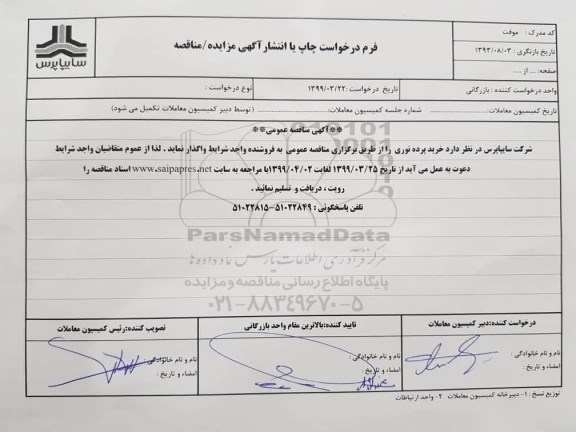 کد مدرک : موقت
تاریخ بازنگری : ۱۳۹۳/۰۸/۰۳
صفحه: ... از ....
فرم درخواست چاپ یا انتشار آگهی مزایده/مناقصه
سایپاپرس
واحد درخواست کننده : بازرگانی
تاریخ درخواست :۱۳۹۹/۰۳/۲۲
نوع درخواست :
تاریخ کمیسیون معاملات:.................... شماره جلسه کمیسیون معاملات:.................... (توسط دبیر کمیسیون معاملات تکمیل می شود)
**آگهی مناقصه عمومی**
شرکت سایپاپرس در نظر دارد خرید پرده نوری را از طریق برگزاری مناقصه عمومی به فروشنده واجد شرایط واگذار نماید . لذا از عموم متقاضیان واجد شرایط
دعوت به عمل می آید از تاریخ ۱۳۹۹/۰۳/۲۵ لغایت ۱۳۹۹/۰۴/۰۲با مراجعه به سایت www.saipapres.net اسناد مناقصه را
رویت ، دریافت و تسلیم نمائید .
تلفن پاسخگوئی : ۵۱۰۲۲۸۴۹-۵۱۰۲۲۸۱۵
ParsNamadData
مرکز فرآوری اطلاعات پارس نماد داده ها
پایگاه اطلاع رسانی مناقصه و مزایده
۰۲۱-۸۸۳۴۹۶۷۰-۵
درخواست کننده:دبیر کمیسیون معاملات
تایید کننده:بالاترین مقام واحد بازرگانی
تصویب کننده:رئیس کمیسیون معاملات
نام و نام خانوادگی :
نام و نام خانوادگی :
نام و نام خانوادگی :
امضاء و تاریخ :
امضاء و تاریخ :
امضاء و تاریخ :
توزیع نسخ : ۱- دبیرخانه کمیسیون معاملات ۲- واحد ارتباطات